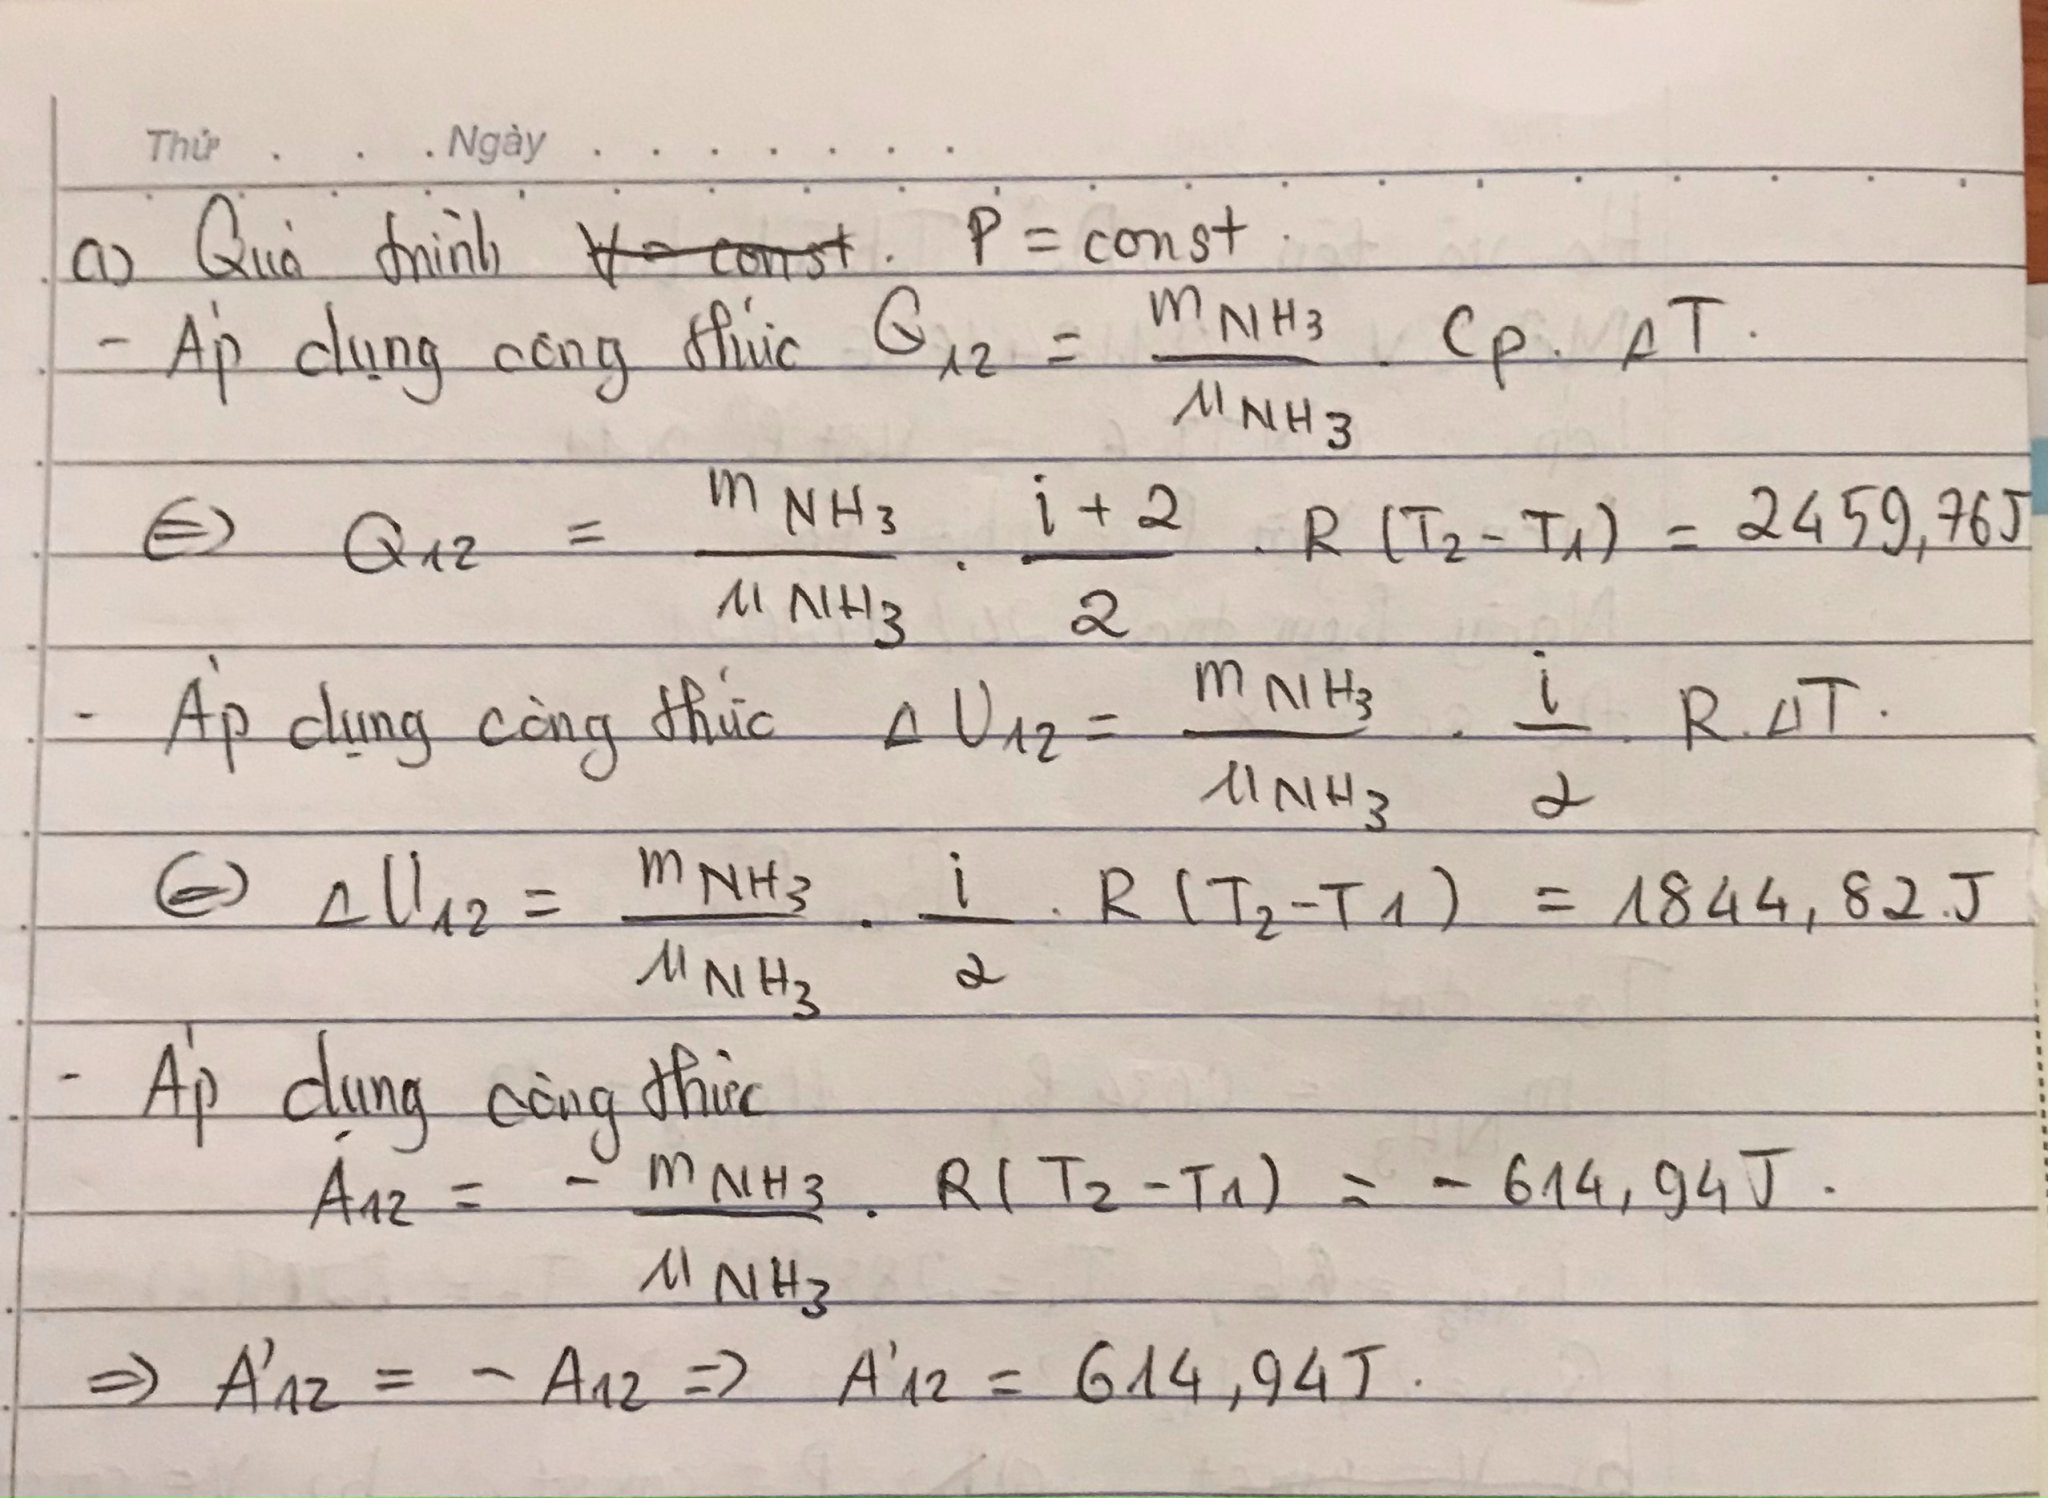 Thứ . . . Ngày . . . . . . .
a) Quá trình V = const. P = const.
- Áp dụng công thức Q₁₂ = m NH₃ / μ NH₃ . Cp. ΔT.
⇔ Q₁₂ = m NH₃ / μ NH₃ . i + 2 / 2 . R (T₂ - T₁) = 2459,76J
- Áp dụng công thức ΔU₁₂ = m NH₃ / μ NH₃ . i / 2 . R. ΔT.
⇔ ΔU₁₂ = m NH₃ / μ NH₃ . i / 2 . R (T₂ - T₁) = 1844,82 J
- Áp dụng công thức
A₁₂ = - m NH₃ / μ NH₃ . R( T₂ - T₁) = - 614,94 J.
⇒ A'₁₂ = - A₁₂ ⇒ A'₁₂ = 614,94J.